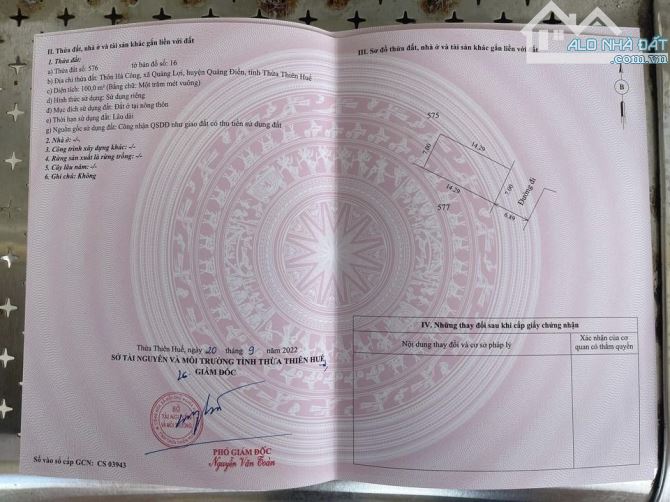 ALO NHÀ ĐẤT
.com.vn
II. Thửa đất, nhà ở và tài sản khác gắn liền với đất
1. Thửa đất:
a) Thửa đất số: 576 tờ bản đồ số: 16
b) Địa chỉ thửa đất: Thôn Hà Công, xã Quảng Lợi, huyện Quảng Điền, tỉnh Thừa Thiên Huế
c) Diện tích: 100,0 m² (Bằng chữ: Một trăm mét vuông)
d) Hình thức sử dụng: Sử dụng riêng
đ) Mục đích sử dụng đất: Đất ở tại nông thôn
e) Thời hạn sử dụng đất: Lâu dài
g) Nguồn gốc sử dụng đất: Công nhận QSDĐ như giao đất có thu tiền sử dụng đất
2. Nhà ở: -/-
3. Công trình xây dựng khác: -/-
4. Rừng sản xuất là rừng trồng: -/-
5. Cây lâu năm: -/-
6. Ghi chú: Không
Thừa Thiên Huế, ngày 20 tháng 9 năm 2022
SỞ TÀI NGUYÊN VÀ MÔI TRƯỜNG TỈNH THỪA THIÊN HUẾ
GIÁM ĐỐC
PHÓ GIÁM ĐỐC
Nguyễn Văn Toàn
Số vào sổ cấp GCN: CS 03943
III. Sơ đồ thửa đất, nhà ở và tài sản khác gắn liền với đất
B
575
7.00
14.29
14.29
7.00
577
6.89
Đường đi
IV. Những thay đổi sau khi cấp giấy chứng nhận
Nội dung thay đổi và cơ sở pháp lý
Xác nhận của cơ
quan có thẩm quyền